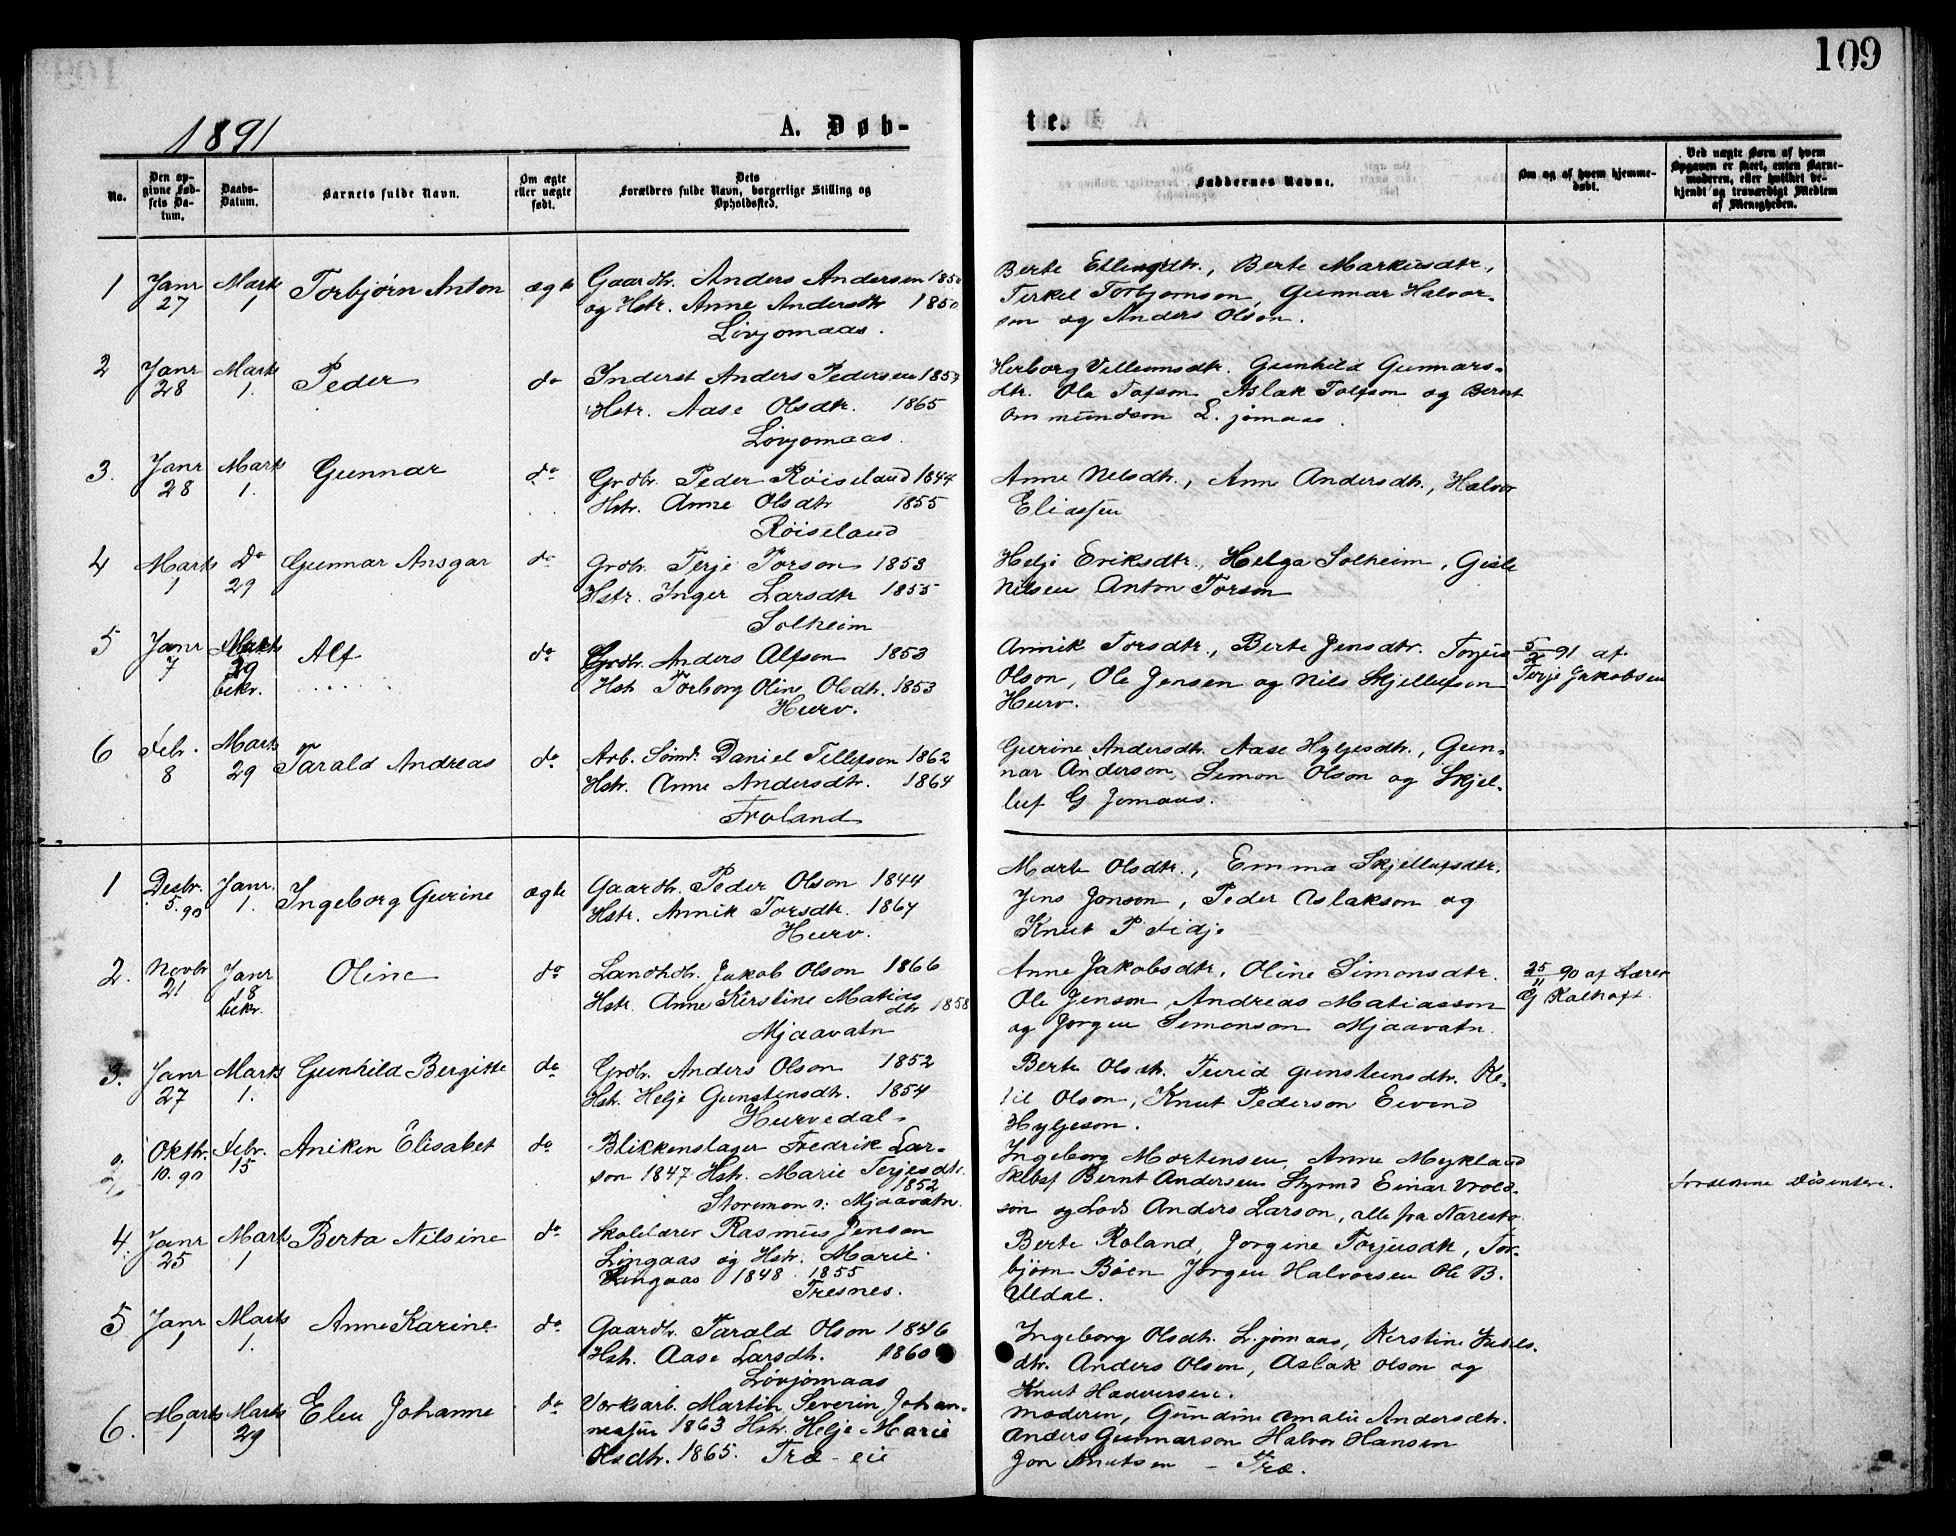 109
1891
A. Døb-
te.
No.
Den op-
givne Fød-
sels Da-
tum.
Daabs-
Datum.
Barnets fulde Navn.
Om ægte
eller uægte
født.
Dets
Forældres fulde Navn, borgerlige Stilling og
Opholdssted.
Faddernes Navne.
Om og af hvem hjemme-
døbt.
Ved uægte Børn af hvem
Opgaven er skeet, enten Barne-
moderen, eller hvilket be-
kjendt og troværdigt Medlem
af Menigheden.
1 Janr 27 Marts 1 Torbjørn Anton ægte
Gaardbr. Anders Andersen 1850
og Hstr. Anne Andersdtr 1850
Løvjomaas.
Berte Ellingdtr., Berte Markusdtr.,
Terkel Torbjørnson, Gunnar Halvor-
son og Anders Olson.
2 Janr 28 Marts 1. Peder do
Inderst Anders Pedersen 1857
Hstr. Aase Olsdtr. 1865
Løvjomaas.
Herborg Villumsdtr. Gunhild Gunnars-
dtr. Ole Tafson Aslak Tolfson og Bernt
Ommundson L. jomaas
3. Janr 28 Marts 1. Gunnar do
Grdbr. Peder Røiseland 1844
Hstr. Anne Olsdtr 1855
Røiseland
Anne Nelsdtr., Anne Andersdtr., Halvor
Eliassen
4 Marts 1 Do 29 Gunnar Ansgar do
Grdbr. Terje Torson 1853
Hstr. Inger Larsdtr 1855
Solheim
Helje Eriksdtr., Helga Solheim, Gisle
Nilsen Anton Torson
5 Janr 7 Marts 29 bekr. Alf do
Grdbr. Anders Alfson 1853
Hstr Torborg Oline Olsdtr. 1853
Hurv.
Annik Torsdtr., Berte Jensdtr. Torjus
Olson, Ole Jensen og Nils Skjellufson
Hurv.
5/2 91 af
Terje Jakobsen
6 Febr. 8 Marts 29 Tarald Andreas do
Arb. Sømd. Daniel Tellefson 1862
Hstr. Anne Andersdtr. 1864
Froland
Gurine Andersdtr. Aase Hylgesdtr., Gun-
nar Anderson, Simon Olson og Skjel-
luf G Jomaas.
1 Desbr. 5. 90 Janr. 1. Ingeborg Gurine ægte
Gaardbr. Peder Olson 1844
Hstr. Annik Torsdtr. 1867
Hurv.
Marte Olsdtr., Emma Skjellufsdtr.
Jens Jonson, Peder Aslakson og
Knut P Fidje
2. Novbr 21 Janr 18 bekr. Oline do
Landhdr. Jakob Olson 1866
Hstr. Anne Kirstine Matias
dtr 1858
Mjaavatn
Anne Jakobsdtr, Oline Simonsdtr.
Ole Jenson, Andreas Matiasson
og Jorgen Simonson Mjaavatn.
25/11 90 af Lærer
Kalhoft.
3. Janr 27 Marts 1. Gunhild Bergitte do
Grdbr. Anders Olson 1852
Hstr. Helje Gunstensdtr. 1854
Hurvedal
Berte Olsdtr. Turid Gunstensdtr. Ke-
til Olson, Knut Pederson Eivend
Hylgeson.
0. Oktbr. 10. 90 Febr. 15 Aniken Elisabet do
Blikkenslager Fredrik Lar-
son 1847 Hstr. Marie Terjesdtr.
1852
Storemon i: Mjaavatn.
Ingeborg Mortensen, Anne Mykland
Skibsf Bernt Andersen Styrmd Einar Vrold-
son og Lods Anders Larson, alle fra Narestø
Forældrene Disentere.
4. Janr 25 Marts 1 Berta Nilsine do
Skolelærer Rasmus Jenson
Lingaas og Hstr. Marie
Lingaas 1848 1855
Tresnes.
Berte Roland, Jorgine Torjusdtr, Tor-
bjørn Bøen Jørgen Halvorsen Ole B.
Uldal.
5 Janr 1 Marts 1. Anne Karine do
Gaardbr. Tarald Olson 1846
Hstr. Aase Larsdtr. 1860
Løvjomaas
Ingeborg Olsdtr. L.jomaas, Kerstine
dtr. Anders Olson, Aslak Olson og
Knut Haavorsen.
6. Marts 1 Marts 29 Elen Johanne do
Vorksarb. Martin Severin Johan-
nessen 1863 Hstr. Helje Marie
Olsdtr. 1865. Træ-eie
Moderen, Gundine Amalie Andersdtr.
Anders Gunnarson Halvor Hansen
Jon Knutsen – Træ.